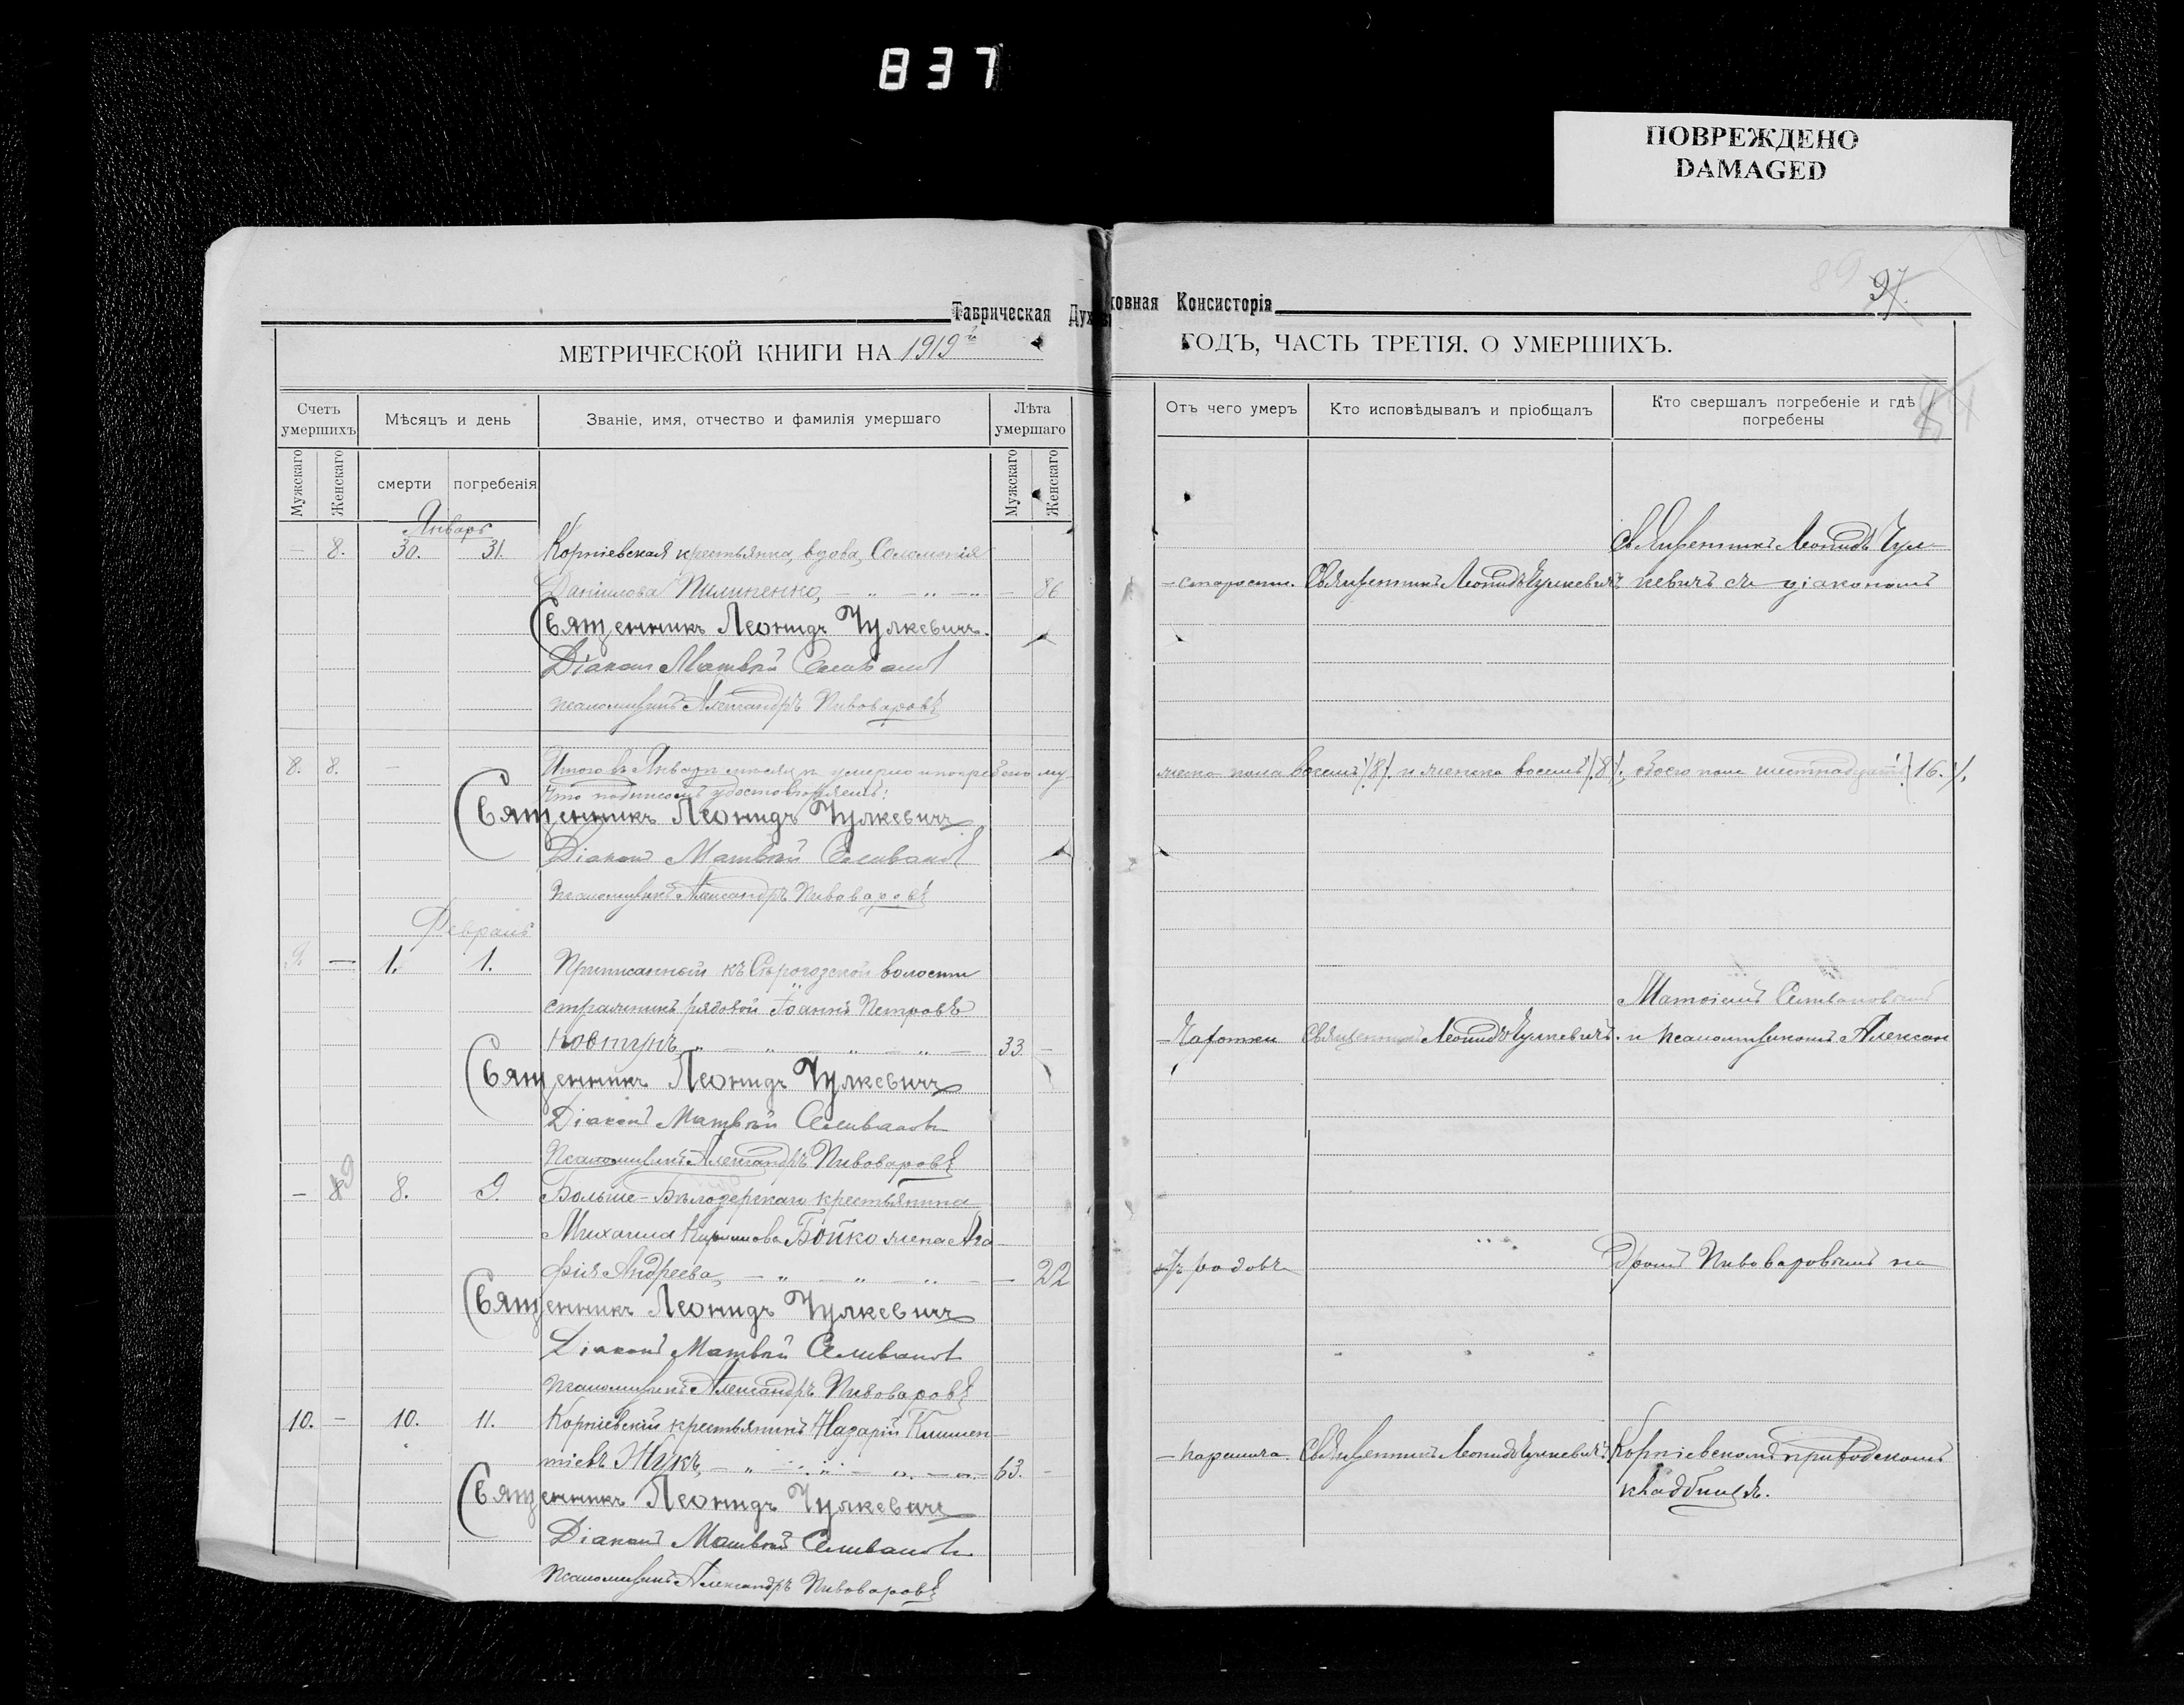 837
ПОВРЕЖДЕНО
DAMAGED
97.
Таврическая Духовная Консисторія
МЕТРИЧЕСКОЙ КНИГИ НА 1919й ГОДЪ, ЧАСТЬ ТРЕТІЯ, О УМЕРШИХЪ.
Счетъ умершихъ
Мѣсяцъ и день
Званіе, имя, отчество и фамилія умершаго
Лѣта умершаго
Отъ чего умеръ
Кто исповѣдывалъ и пріобщалъ
Кто свершалъ погребеніе и гдѣ погребены
Мужскаго
Женскаго
смерти
погребенія
Мужскаго
Женскаго
Январь
— 8. 30. 31. Корніевская крестьянка, вдова, Соломонія
Священникъ Леонидъ Чул-
Даніилова Пилипенко, — 86
— старости. Священникъ Леонидъ Чулкевичъ. кевичъ съ діакономъ
Священникъ Леонидъ Чулкевичъ.
Діаконъ Матвѣй Селивановъ
Псаломщикъ Александръ Пивоваровъ
8. 8. — — Итого въ Январѣ мѣсяцѣ умерло и погребено му-
жеска пола восемь /8/. и женска восемь /.8/., обоего пола шестнадцать /16./.
Что подписомъ удостовѣряемъ:
Священникъ Леонидъ Чулкевичъ
Діаконъ Матвѣй Селивановъ
Псаломщикъ Александръ Пивоваровъ
Февраль
9. — 1. 1. Приписанный къ Сѣрогозской волости
стражникъ рядовой Іоаннъ Петровъ
Матвіемъ Селивановымъ
Ковтунъ, 33. —
— Чахотки Священникъ Леонидъ Чулкевичъ. и псаломщикомъ Алексан
Священникъ Леонидъ Чулкевичъ
Діаконъ Матвѣй Селивановъ
Псаломщикъ Александръ Пивоваровъ
— 9 8. 9. Больше-Бѣлозерскаго крестьянина
Михаила Кириллова Бойко жена Ага-
фія Андреева, — 22
Отъ родовъ
дромъ Пивоваровымъ на
Священникъ Леонидъ Чулкевичъ
Діаконъ Матвѣй Селивановъ
Псаломщикъ Александръ Пивоваровъ
10. — 10. 11. Корніевскій крестьянинъ Назарій Климен-
тіевъ Жукъ, — 63. —
Священникъ Леонидъ Чулкевичъ. Корніевскомъ приходскомъ
кладбищѣ.
Священникъ Леонидъ Чулкевичъ
Діаконъ Матвѣй Селивановъ
Псаломщикъ Александръ Пивоваровъ